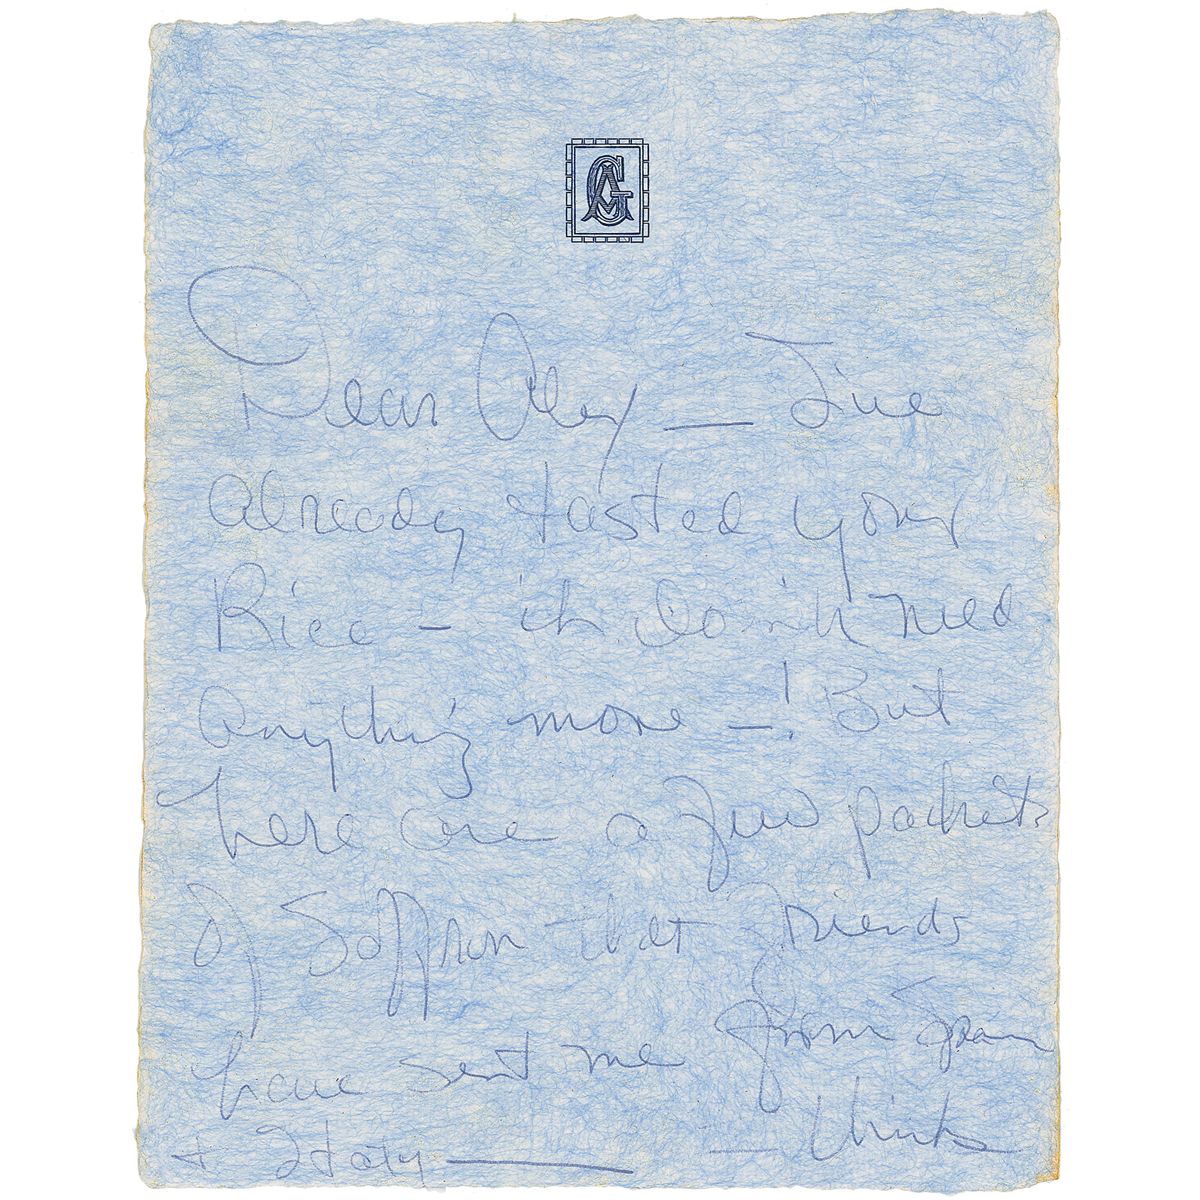 AG
Dear Alex — I've
already tasted your
Rice — it don't need
anything more —! But
here are a few packets
of Saffron that friends
have sent me from Spain
& Italy —